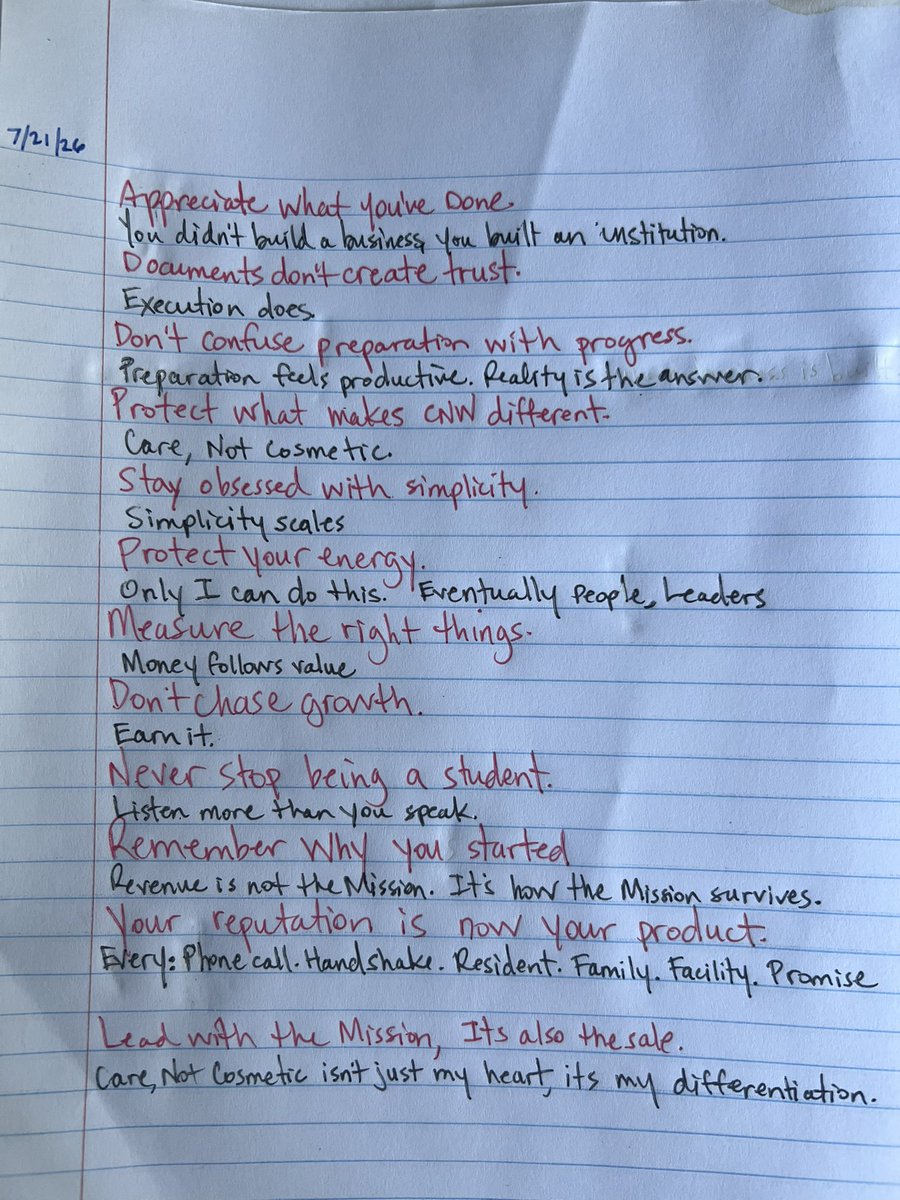 7/21/26
Appreciate what you've Done.
You didn't build a business, you built an institution.
Documents don't create trust.
Execution does.
Don't confuse preparation with progress.
Preparation feels productive. Reality is the answer.
Protect what makes CNW different.
Care, Not Cosmetic.
Stay obsessed with simplicity.
Simplicity scales
Protect your energy.
Only I can do this. Eventually People, Leaders
Measure the right things.
Money follows value
Don't chase growth.
Earn it.
Never stop being a student.
Listen more than you speak.
Remember Why you started
Revenue is not the Mission. It's how the Mission survives.
Your reputation is now your product.
Every: Phone call. Handshake. Resident. Family. Facility. Promise
Lead with the Mission, Its also the sale.
Care, Not Cosmetic isn't just my heart, its my differentiation.